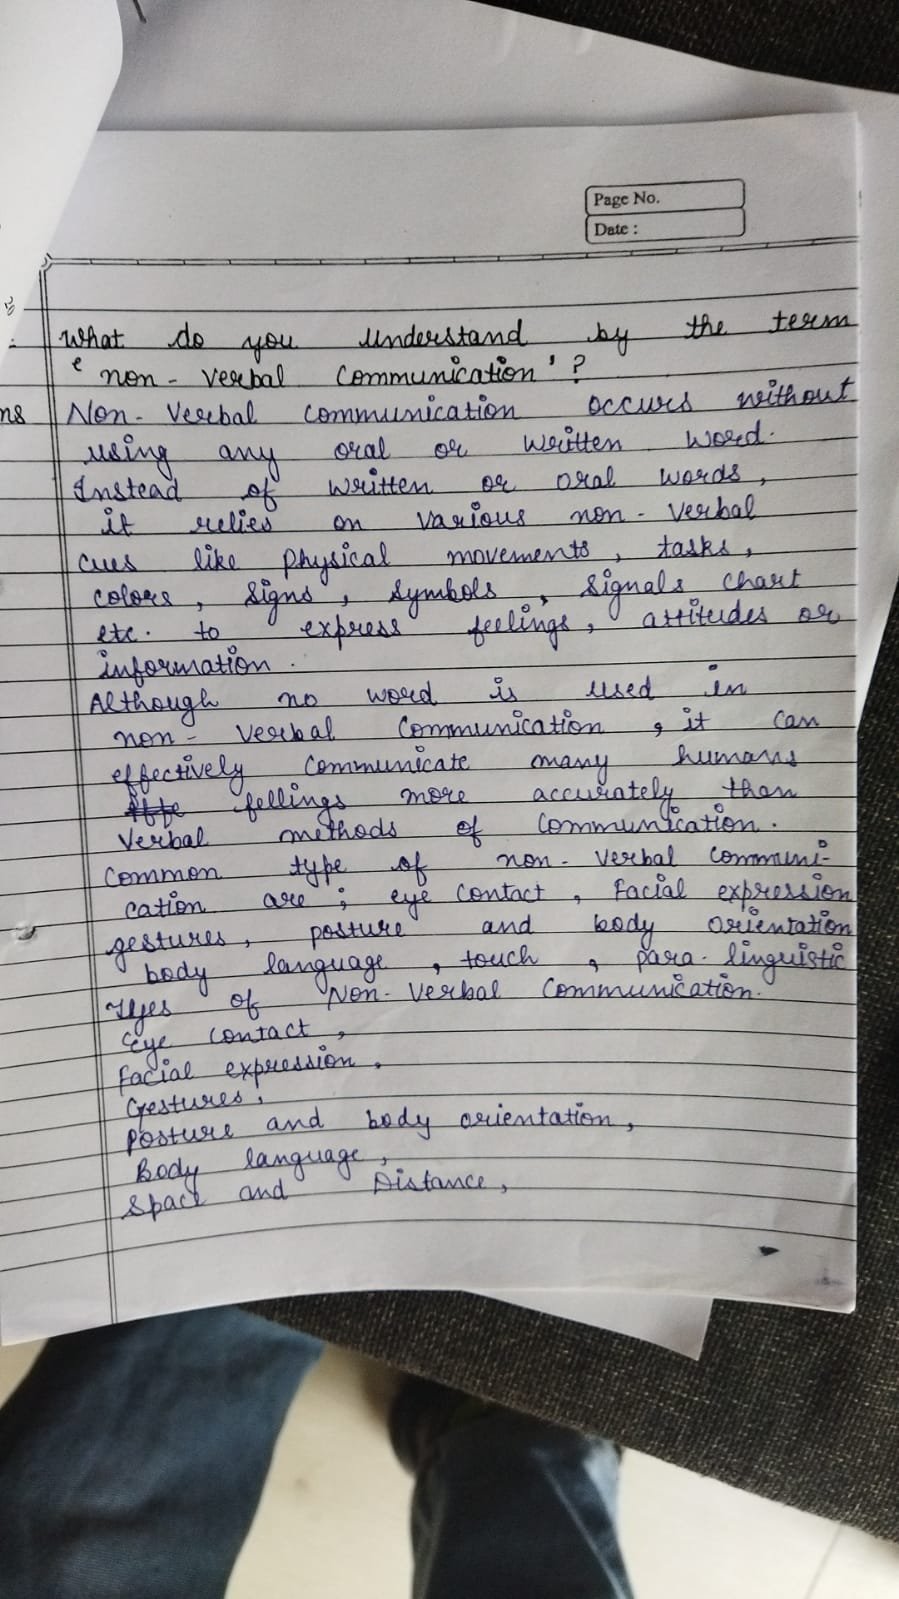 Page No.
Date :
What do you understand by the term
' non - verbal communication ' ?
ns Non - Verbal communication occurs without
using any oral or written word.
Instead of written or oral words,
it relies on various non - verbal
cues like physical movements, tasks,
colors, signs, symbols, signals chart
etc. to express feelings, attitudes or
information.
Although no word is used in
non - verbal communication, it can
effectively communicate many humans
fellings more accurately than
verbal methods of communication.
Common type of non - verbal communi-
cation are ; eye contact, facial expression
gestures, posture and body orientation
body language, touch, para - linguistic
of Non - Verbal Communication.
Eye contact,
Facial expression,
Gestures,
Posture and body orientation,
Body language,
Space and Distance,